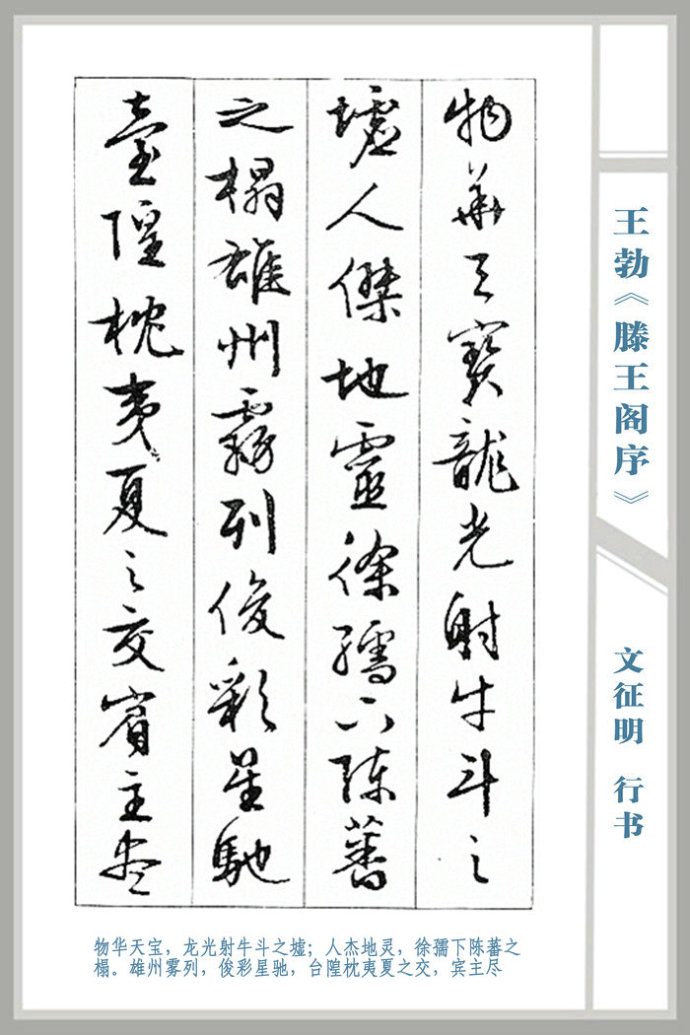 物華天寶龍光射牛斗之
墟人傑地靈徐孺下陈蕃
之榻雄州霧列俊彩星馳
臺隍枕夷夏之交賓主尽
王勃《滕王阁序》
文征明 行书
物华天宝，龙光射牛斗之墟；人杰地灵，徐孺下陈蕃之
榻。雄州雾列，俊彩星驰，台隍枕夷夏之交，宾主尽